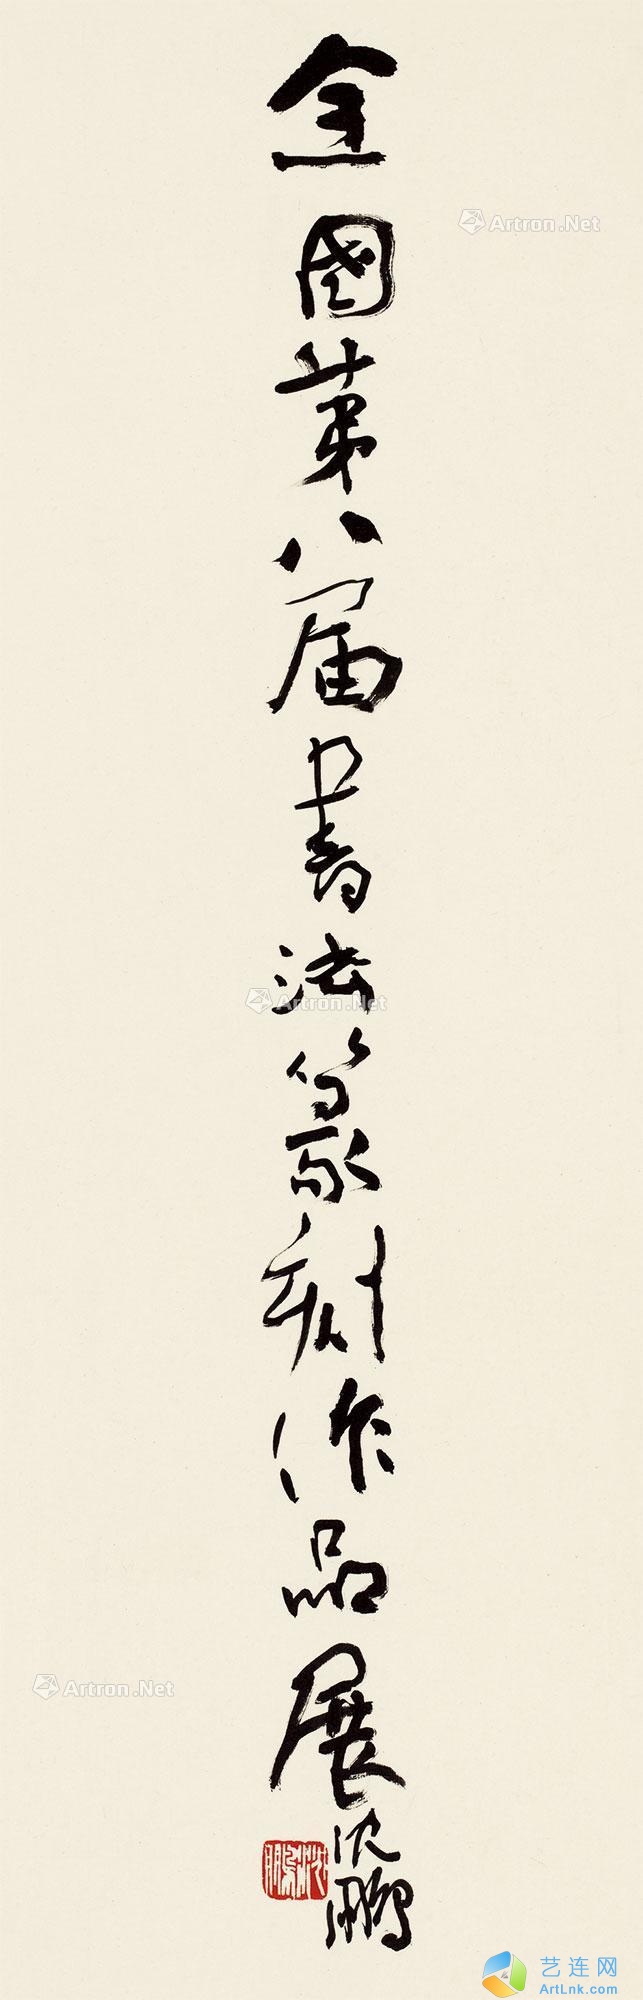 全國第八届書法篆刻作品展
沈鵬
沈鵬
Artron.Net
Artron.Net
Artron.Net
艺连网
ArtLnk.com